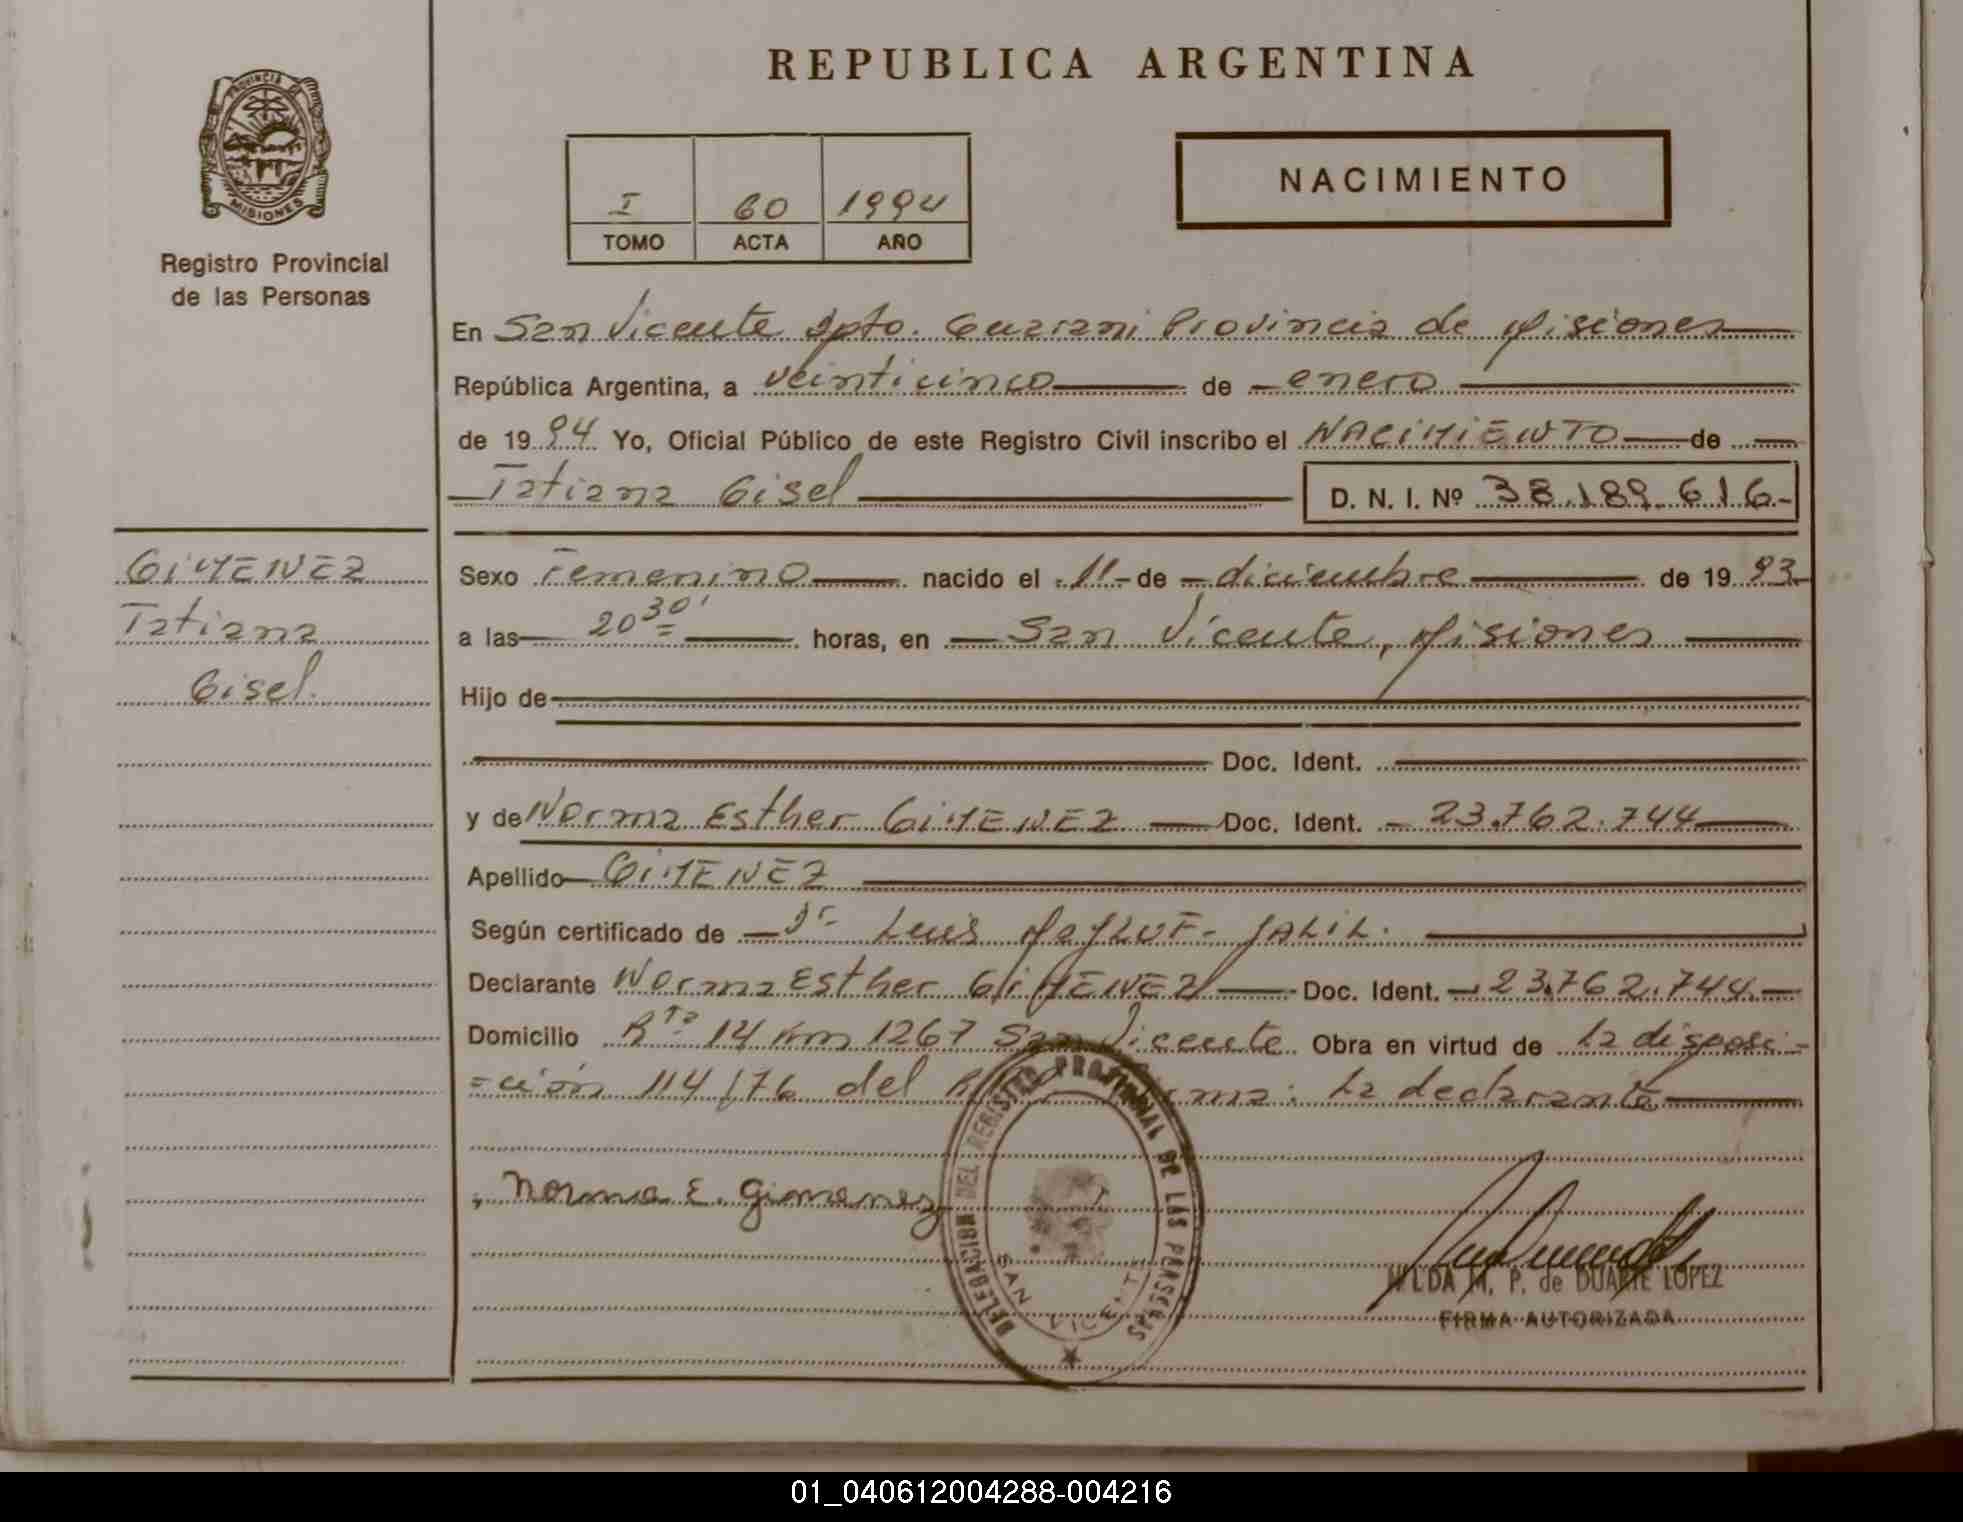 REPUBLICA ARGENTINA
PROVINCIA DE
MISIONES
Registro Provincial
de las Personas
I 60 1994
TOMO ACTA AÑO
NACIMIENTO
En San Vicente Dpto. Guarani Provincia de Misiones
República Argentina, a veinticinco de enero
de 1994 Yo, Oficial Público de este Registro Civil inscribo el NACIMIENTO de
Tatiana Gisel D. N. I. Nº 38.189.616.-
GIMENEZ
Tatiana
Gisel.
Sexo Femenino nacido el 11 de diciembre de 1993.
a las 20 30' horas, en San Vicente, Misiones
Hijo de
Doc. Ident.
y de Norma Esther GIMENEZ Doc. Ident. 23.762.744
Apellido GIMENEZ
Según certificado de Dr. Luis JALIL.
Declarante Norma Esther GIMENEZ Doc. Ident. 23.762.744.
Domicilio Rta 14 Km 1267 San Vicente Obra en virtud de La disposi-
-ción 114/76 del La declarante
Norma E. Gimenez
DELEGACION DEL REGISTRO PROVINCIAL DE LAS PERSONAS
SAN VICENTE
M. P. de DUARTE LOPEZ
FIRMA AUTORIZADA
01_040612004288-004216